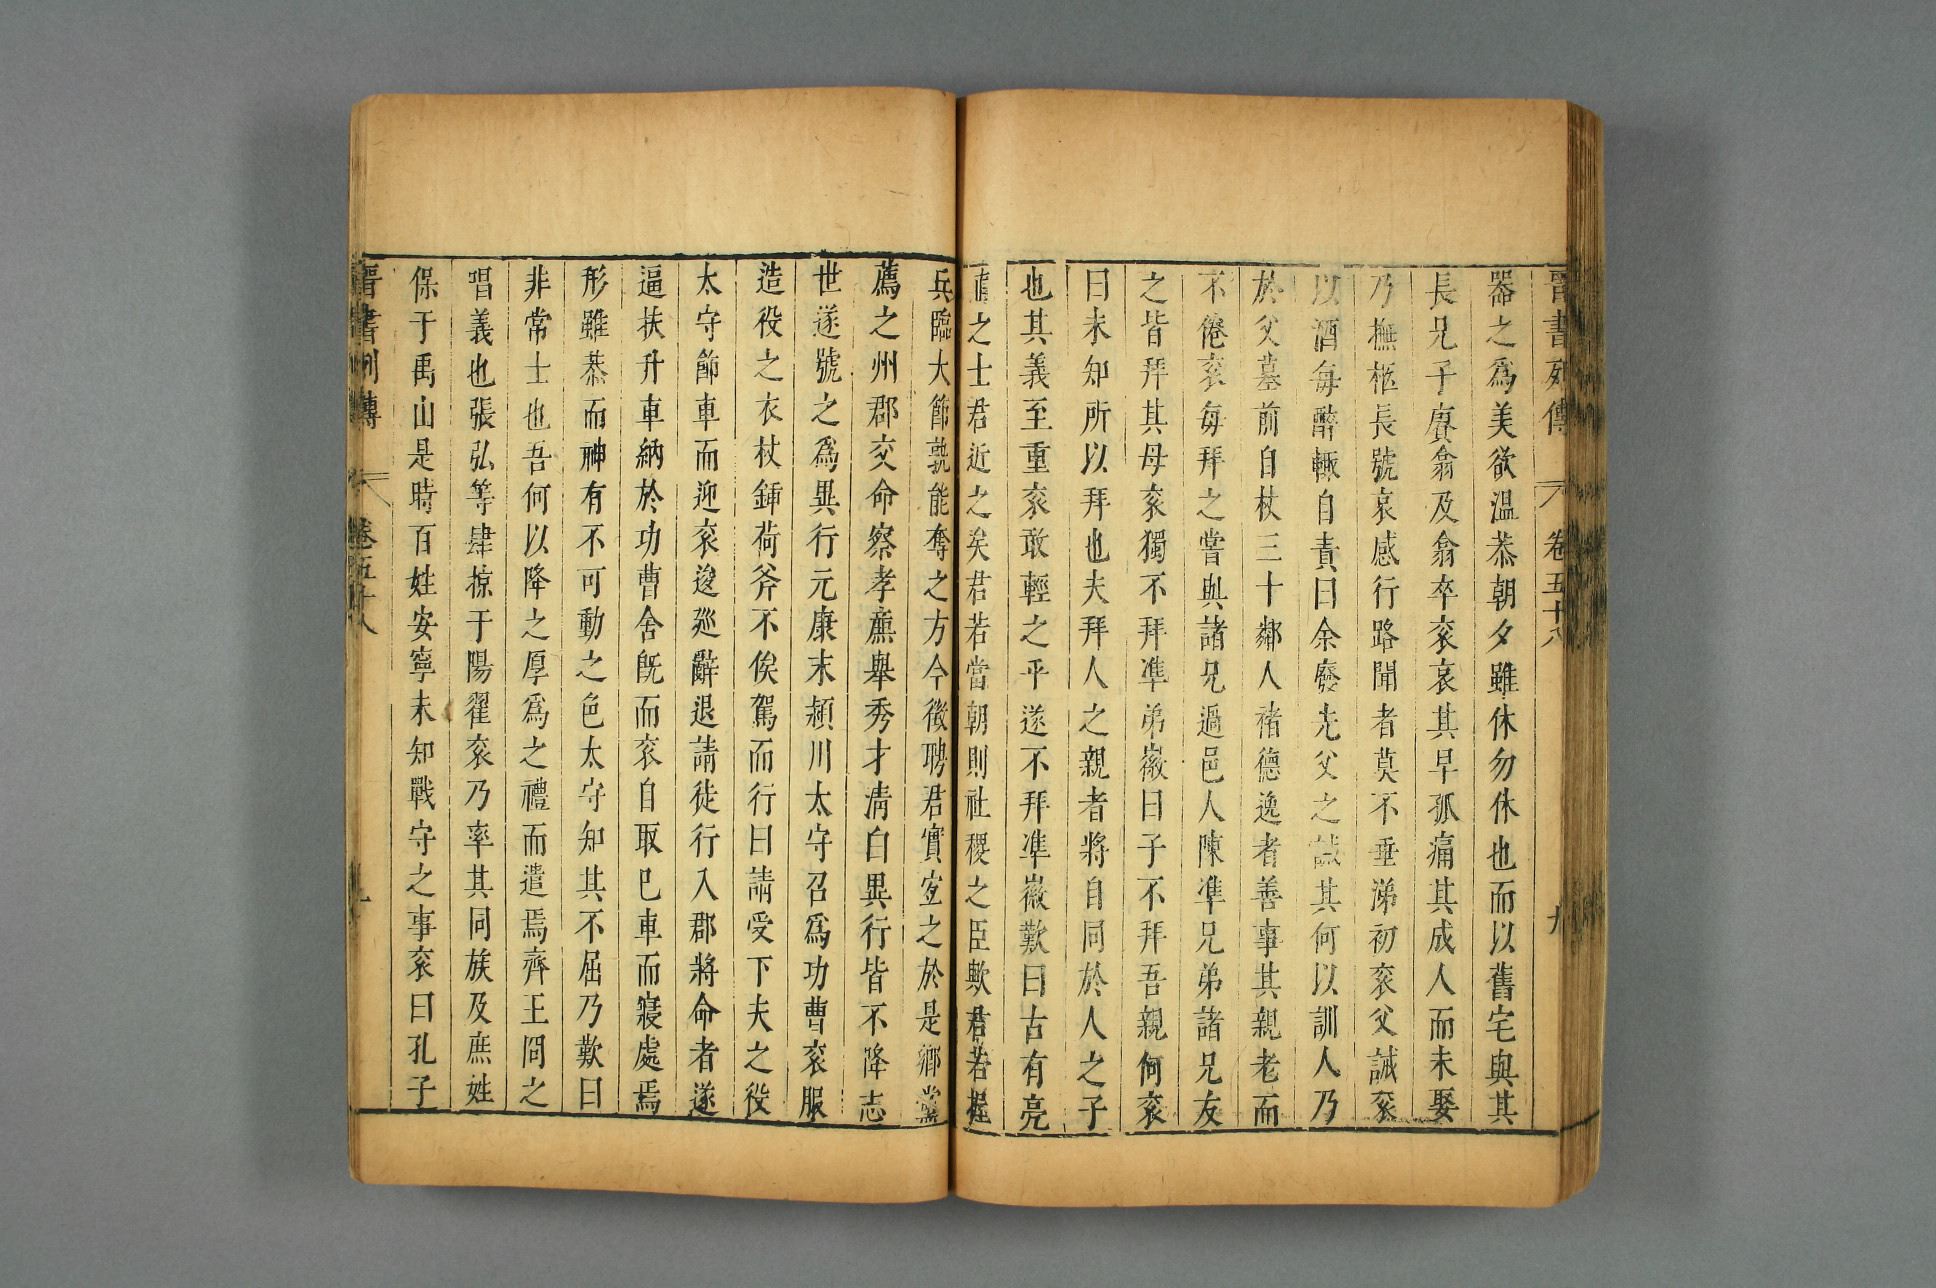 晉書列傳 卷五十八 九
器之爲美欲溫恭朝夕雖休勿休也而以舊宅與其
長兄子賡翕及翕卒袞哀其早孤痛其成人而未娶
乃撫柩長號哀感行路聞者莫不垂涕初袞父誡袞
以酒每醉輒自責曰余廢先父之誡其何以訓人乃
於父墓前自杖三十鄰人褚德逸者善事其親老而
不倦袞每拜之嘗與諸兄過邑人陳準兄弟諸兄友
之皆拜其母袞獨不拜準弟徽曰子不拜吾親何袞
曰未知所以拜也夫拜人之親者將自同於人之子
也其義至重袞敢輕之乎遂不拜準徽歎曰古有亮
直之士君近之矣君若當朝則社稷之臣歟君若握
兵臨大節孰能奪之方今徵聘君實宜之於是鄉黨
薦之州郡交命察孝廉舉秀才清白異行皆不降志
世遂號之爲異行元康末潁川太守召爲功曹袞服
造役之衣杖鍤荷斧不俟駕而行曰請受下夫之役
太守飾車而迎袞逡巡辭退請徒行入郡將命者遂
逼扶升車納於功曹舍既而袞自取已車而寢處焉
形雖恭而神有不可動之色太守知其不屈乃歎曰
非常士也吾何以降之厚爲之禮而遣焉齊王冏之
唱義也張弘等肆掠于陽翟袞乃率其同族及庶姓
保于禹山是時百姓安寧未知戰守之事袞曰孔子
晉書列傳 卷五十八